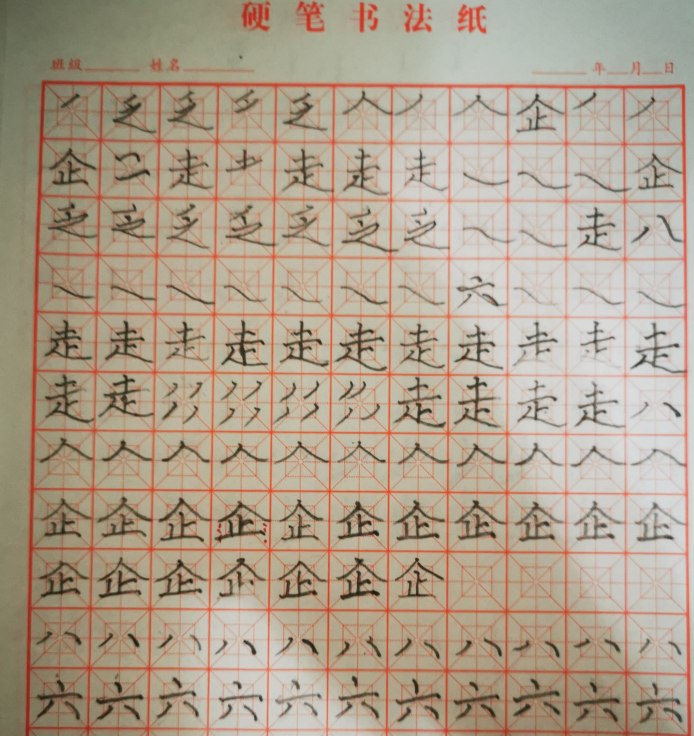 硬笔书法纸
班级 姓名 年 月 日
丿 乏 乏 乏 人 丿 人 企 丿 丿
企 二 走 走 走 走 企
乏 乏 乏 乏 乏 乏 乏 走 八
六
走 走 走 走 走 走 走 走 走 走 走
走 走 走 走 走 走 八
人 人 人 人 人 人 人 人 人 人 人
企 企 企 企 企 企 企 企 企 企 企
企 企 企 企 企 企 企
八 八 八 八 八 八 八 八 八 八 八
六 六 六 六 六 六 六 六 六 六 六